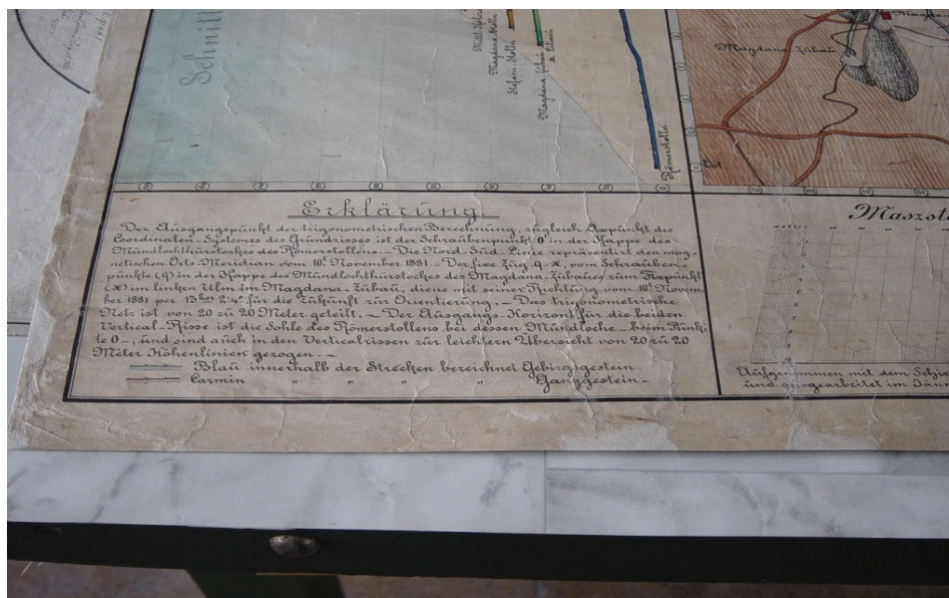 Schnitt
Magdana Stolln
Stefani Stolln
Magdana Zubau
Römerstolln
Magdana Zubau
Ort
Erklärung.
Der Ausgangspunkt der trigonometrischen Berechnung, zugleich Axpunkt des
Coordinaten-Systemes des Grundrisses ist der Schraubenpunkt 0 in der Kappe des
Mundlochthürstockes des Römerstollens. – Die Nord-Süd-Linie repräsentirt den mag-
netischen Orts-Meridian vom 10t November 1881. – Der fixe Zug q-x, vom Schrauben-
punkte (q) in der Kappe des Mundlochthürstockes des Magdana-Zubaues zum Fixpunkt
(x) im linken Ulm im Magdana-Zubau, diene mit seiner Richtung vom 10t Novem-
ber 1881 per 13 hor für die Zukunft zur Orientierung. – Das trigonometrische
Netz ist von 20 zu 20 Meter geteilt. – Der Ausgangs-Horizont für die beiden
Vertical-Risse ist die Sohle des Römerstollens bei dessen Mundloche – beim Punk-
te 0 –, und sind auch in den Verticalrissen zur leichtern Übersicht von 20 zu 20
Meter Höhenlinien gezogen. –
Blau innerhalb der Strecken bezeichnet Gebirgsgestein.
Carmin " " " " Ganggestein –
Maszst
Aufgenommen mit dem Setz
und ausgearbeitet im Jän